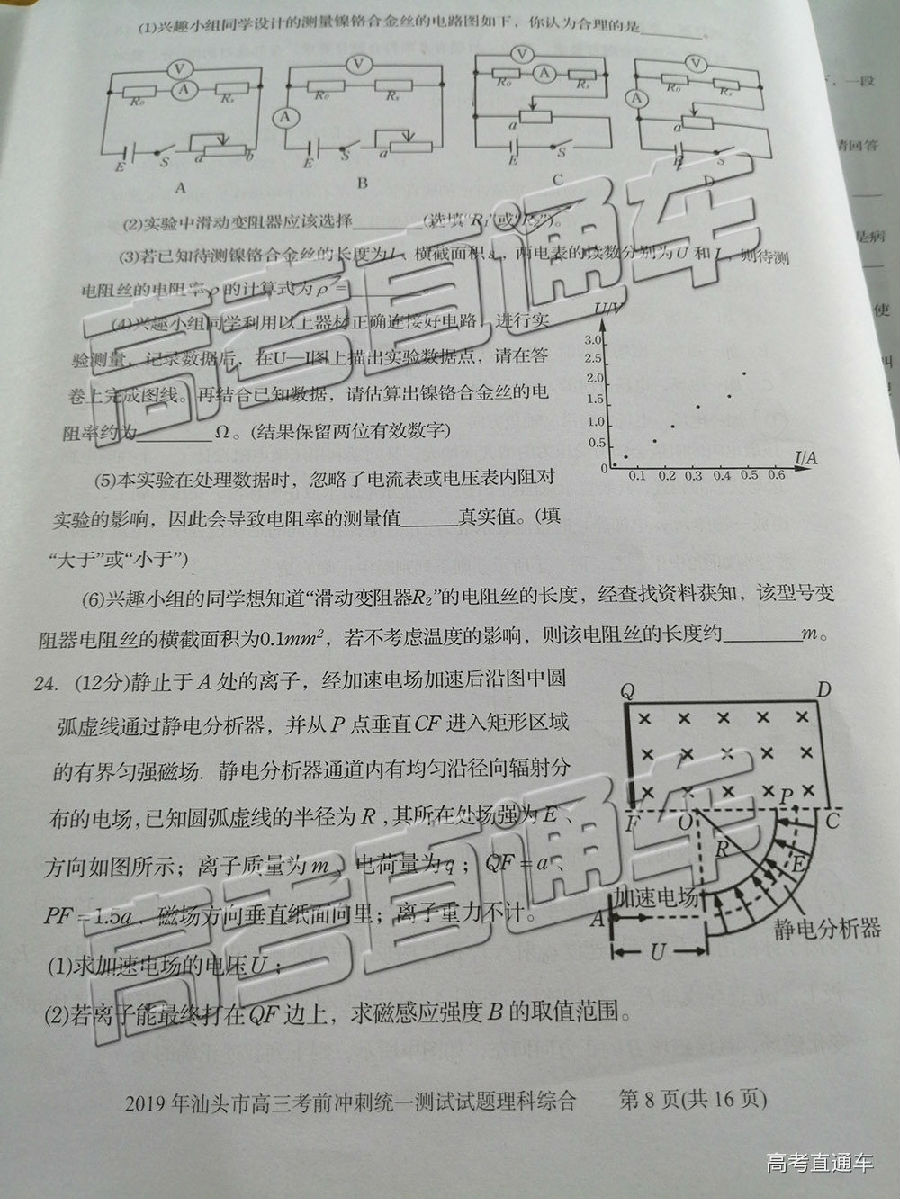 (1)兴趣小组同学设计的测量镍铬合金丝的电路图如下，你认为合理的是______.
V V V V
R₀ A Rₓ R₀ Rₓ R₀ A Rₓ R₀ Rₓ
A A
a a
E S a b E S a E S E S
A B C D
，一段
请回答
是病
使
(2)实验中滑动变阻器应该选择______(选填“R₁”或“R₂”)。
(3)若已知待测镍铬合金丝的长度为L、横截面积，两电表的读数分别为U和I，则待测
电阻丝的电阻率ρ的计算式为ρ=
(4)兴趣小组同学利用以上器材正确连接好电路，进行实
验测量，记录数据后，在U—I图上描出实验数据点，请在答
卷上完成图线。再结合已知数据，请估算出镍铬合金丝的电
阻率约为______Ω。(结果保留两位有效数字)
U/V
3.0
2.5
2.0
1.5
1.0
0.5
0
0.1 0.2 0.3 0.4 0.5 0.6
I/A
(5)本实验在处理数据时，忽略了电流表或电压表内阻对
实验的影响，因此会导致电阻率的测量值_____真实值。(填
“大于”或“小于”)
(6)兴趣小组的同学想知道“滑动变阻器R₂”的电阻丝的长度，经查找资料获知，该型号变
阻器电阻丝的横截面积为0.1mm²，若不考虑温度的影响，则该电阻丝的长度约________m。
24. (12分)静止于A处的离子，经加速电场加速后沿图中圆
弧虚线通过静电分析器，并从P点垂直CF进入矩形区域
的有界匀强磁场.静电分析器通道内有均匀沿径向辐射分
布的电场,已知圆弧虚线的半径为R,其所在处场强为E、
方向如图所示；离子质量为m、电荷量为q；QF=a、
PF=1.5a，磁场方向垂直纸面向里；离子重力不计。
(1)求加速电场的电压U；
(2)若离子能最终打在QF边上，求磁感应强度B的取值范围。
Q D
P
F O C
R E
加速电场
A
U
静电分析器
2019年汕头市高三考前冲刺统一测试试题理科综合 第8页(共16页)
高考直通车
高考直通车
高考直通车